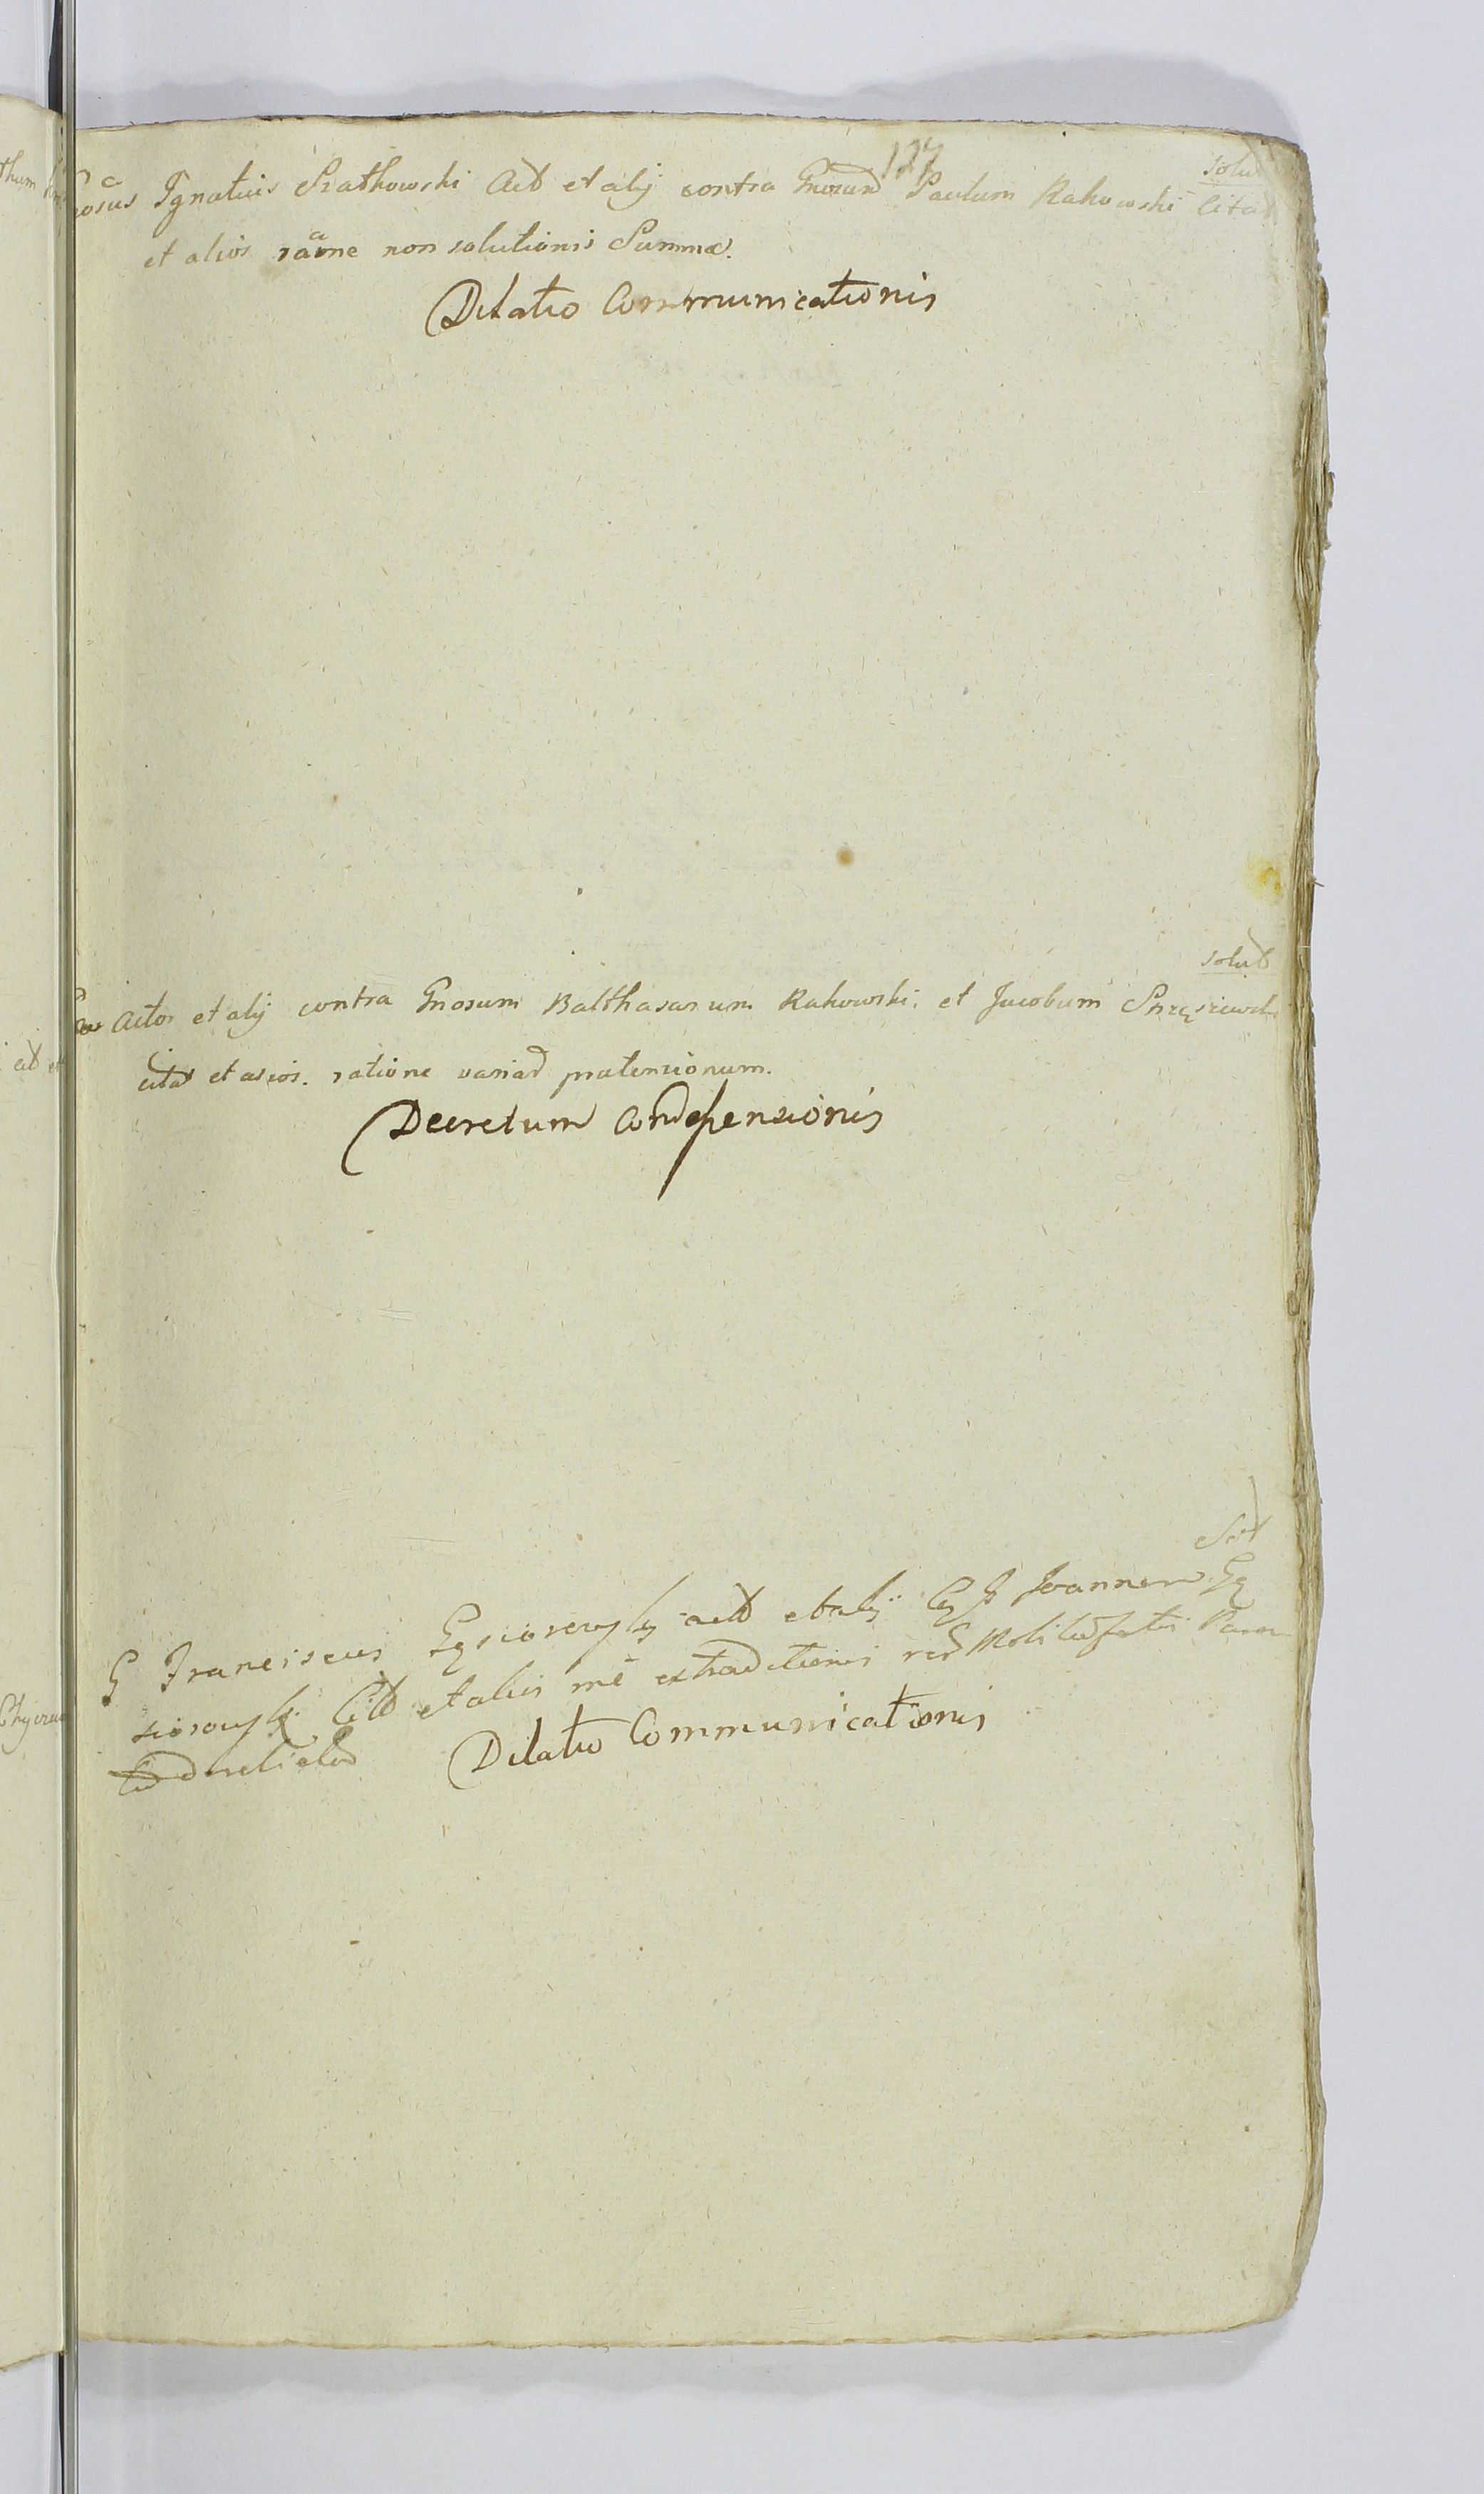 127
solut
Gnosus Ignatius Szatkowski Act et alij contra Gnosum Paulum Rakowski Citat
et alios raõne non solutionis Summæ.
Dilatio Communicationis
solut
Actor et alij contra Gnosum Balthasarum Rakowski et Jacobum
citat et alios. ratione variar prætensionum.
Decretum Condescensionis
Sol
G Franciscus Gąsiorowski act et alij C G Joannem Gą
siorowski Citt et alios rne extraditionis rer
derelictar
Dilatio Communicationis